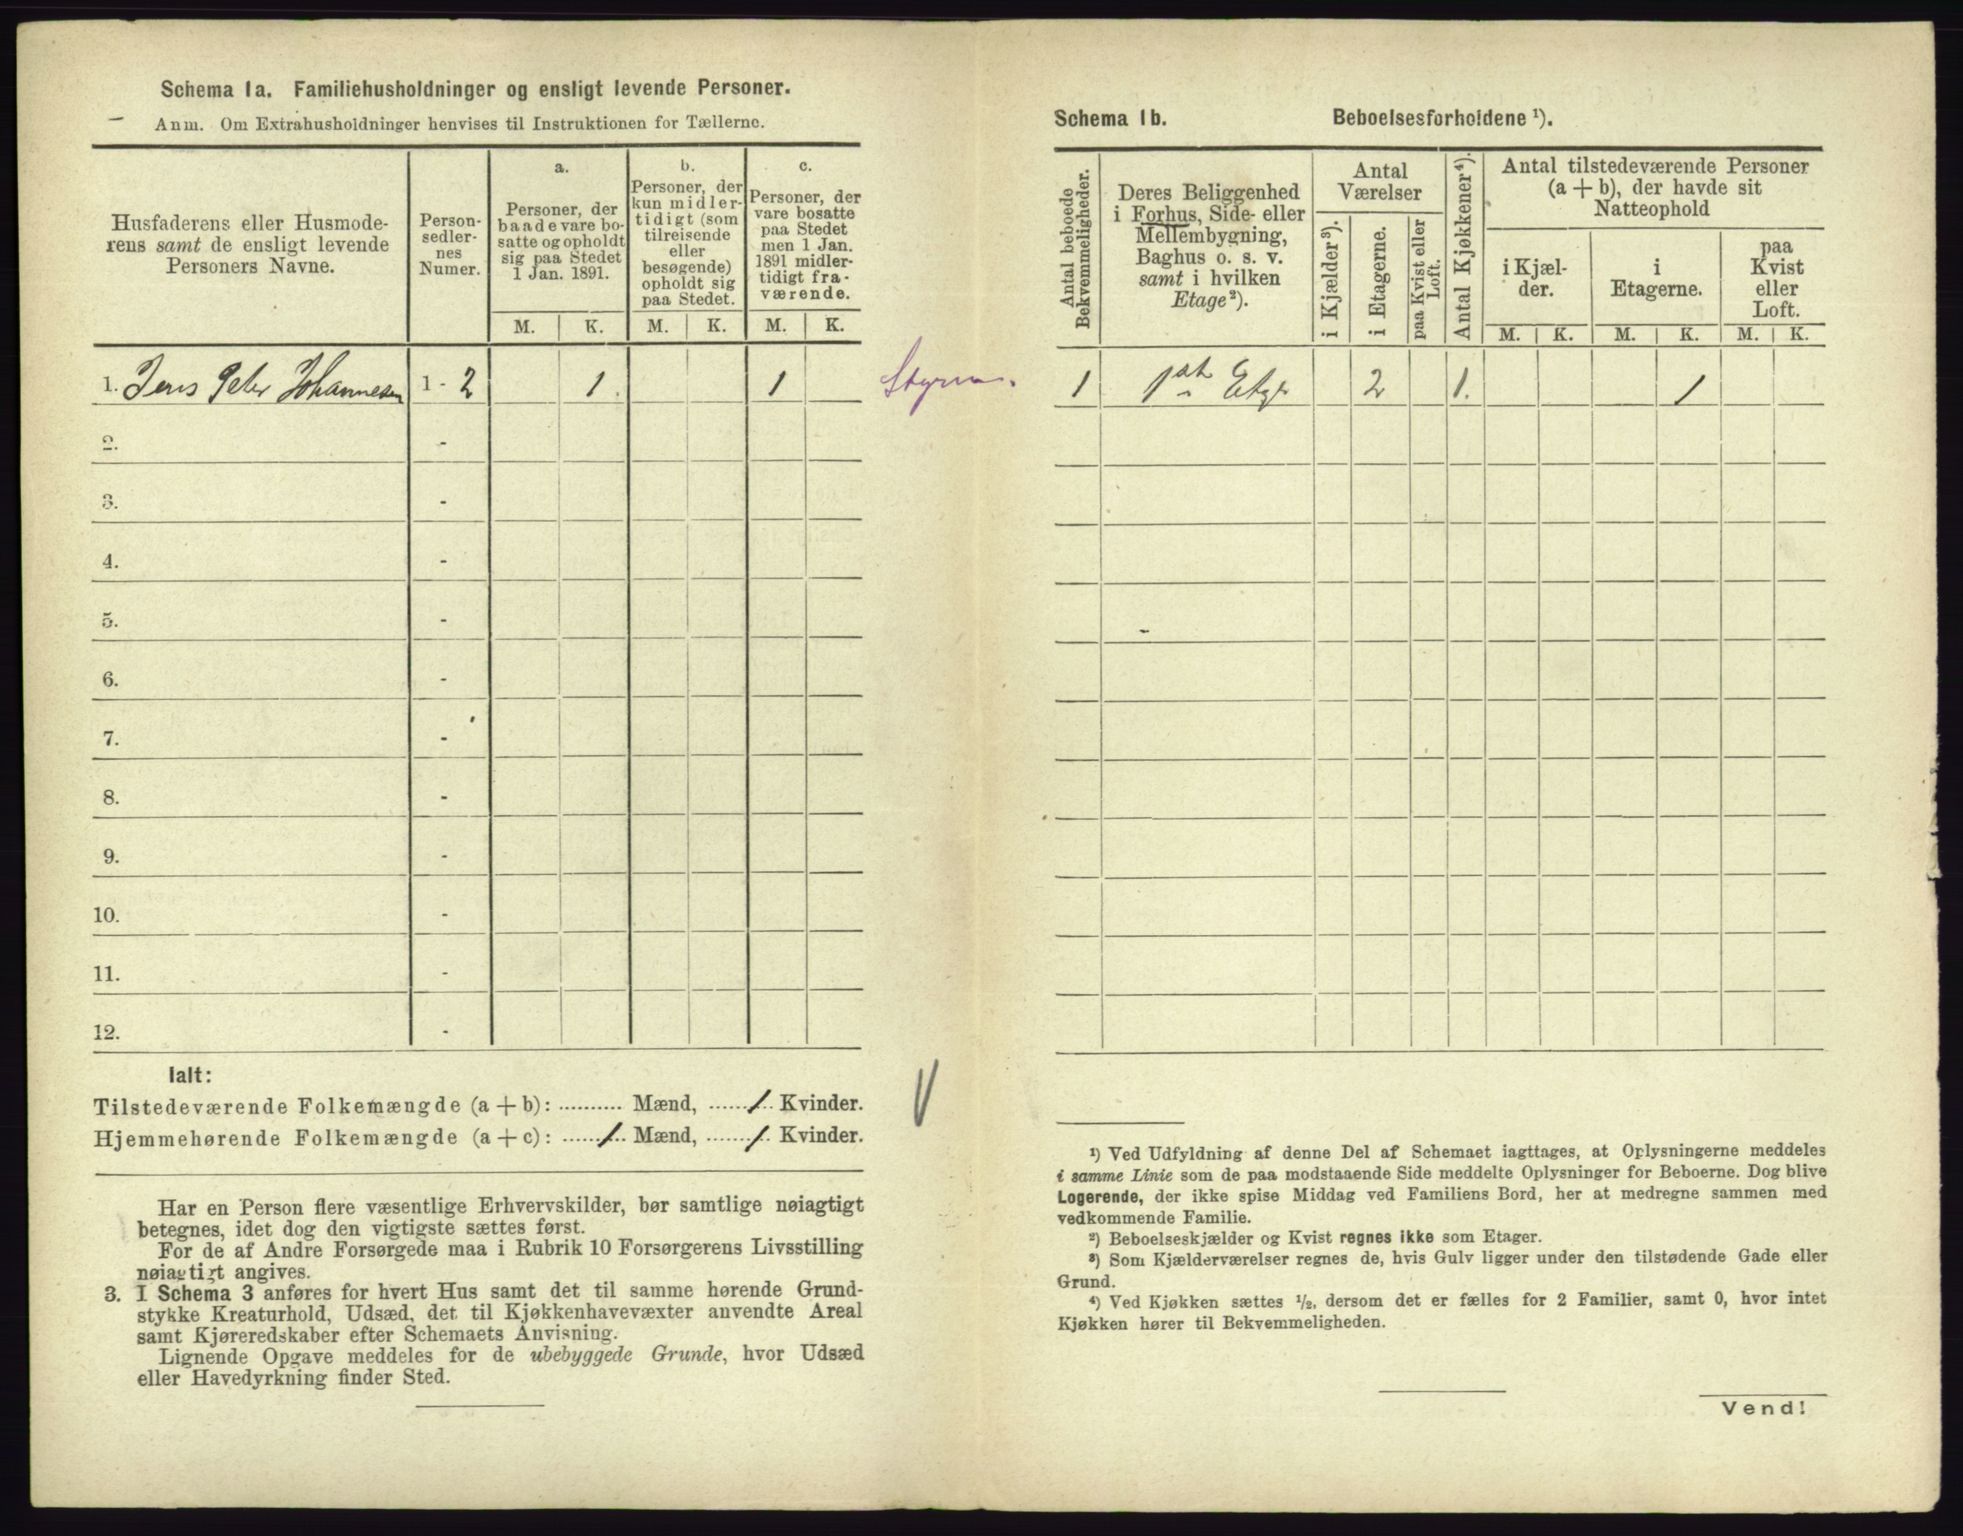 Schema 1a. Familiehusholdninger og ensligt levende Personer.
Anm. Om Extrahusholdninger henvises til Instruktionen for Tællerne.
Husfaderens eller Husmode-
rens samt de ensligt levende
Personers Navne.
Person-
sedler-
nes
Numer.
a.
Personer, der
baade vare bo-
satte og opholdt
sig paa Stedet
1 Jan. 1891.
b.
Personer, der
kun midler-
tidigt (som
tilreisende
eller
besøgende)
opholdt sig
paa Stedet.
c.
Personer, der
vare bosatte
paa Stedet
men 1 Jan.
1891 midler-
tidigt fra-
værende.
M. K. M. K. M. K.
1. Jens Peter Johannesen 1 - 2 1. 1
2. -
3. -
4. -
5. -
6. -
7. -
8. -
9. -
10. -
11. -
12. -
Ialt:
Tilstedeværende Folkemængde (a + b): .......... Mænd, ......1.. Kvinder.
Hjemmehørende Folkemængde (a + c): ......1.. Mænd, ......1.. Kvinder.
Har en Person flere væsentlige Erhvervskilder, bør samtlige nøiagtigt
betegnes, idet dog den vigtigste sættes først.
For de af Andre Forsørgede maa i Rubrik 10 Forsørgerens Livsstilling
nøiagtigt angives.
3. I Schema 3 anføres for hvert Hus samt det til samme hørende Grund-
stykke Kreaturhold, Udsæd, det til Kjøkkenhavevæxter anvendte Areal
samt Kjøreredskaber efter Schemaets Anvisning.
Lignende Opgave meddeles for de ubebyggede Grunde, hvor Udsæd
eller Havedyrkning finder Sted.
Schema 1b. Beboelsesforholdene ¹).
Antal beboede
Bekvemmeligheder.
Deres Beliggenhed
i Forhus, Side- eller
Mellembygning,
Baghus o. s. v.
samt i hvilken
Etage²).
Antal
Værelser
i Kjælder³).
i Etagerne.
paa Kvist eller
Loft.
Antal Kjøkkener⁴).
Antal tilstedeværende Personer
(a + b), der havde sit
Natteophold
i Kjæl-
der.
i
Etagerne.
paa
Kvist
eller
Loft.
M. K. M. K. M. K.
1 1st Etge 2 1. 1
¹) Ved Udfyldning af denne Del af Schemaet iagttages, at Oplysningerne meddeles
i samme Linie som de paa modstaaende Side meddelte Oplysninger for Beboerne. Dog blive
Logerende, der ikke spise Middag ved Familiens Bord, her at medregne sammen med
vedkommende Familie.
²) Beboelseskjælder og Kvist regnes ikke som Etager.
³) Som Kjælderværelser regnes de, hvis Gulv ligger under den tilstødende Gade eller
Grund.
⁴) Ved Kjøkken sættes ¹/₂, dersom det er fælles for 2 Familier, samt 0, hvor intet
Kjøkken hører til Bekvemmeligheden.
Vend!